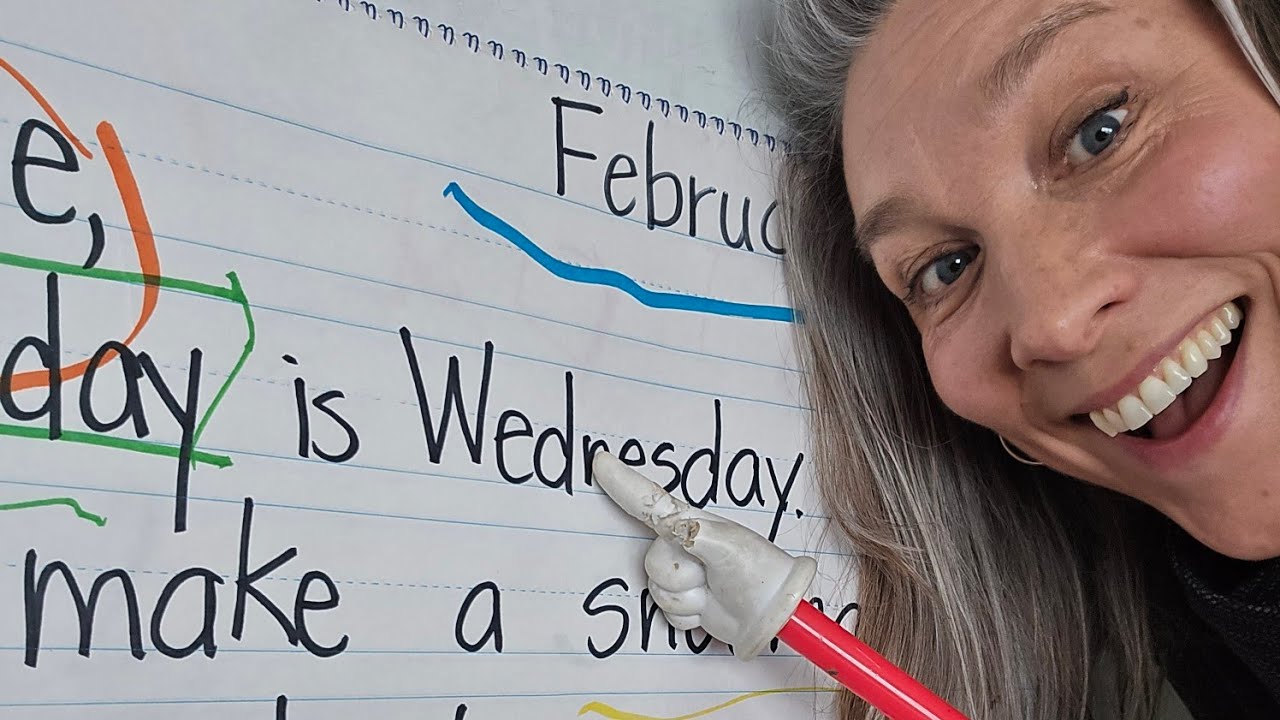 Februa
e,
day is Wednesday.
make a